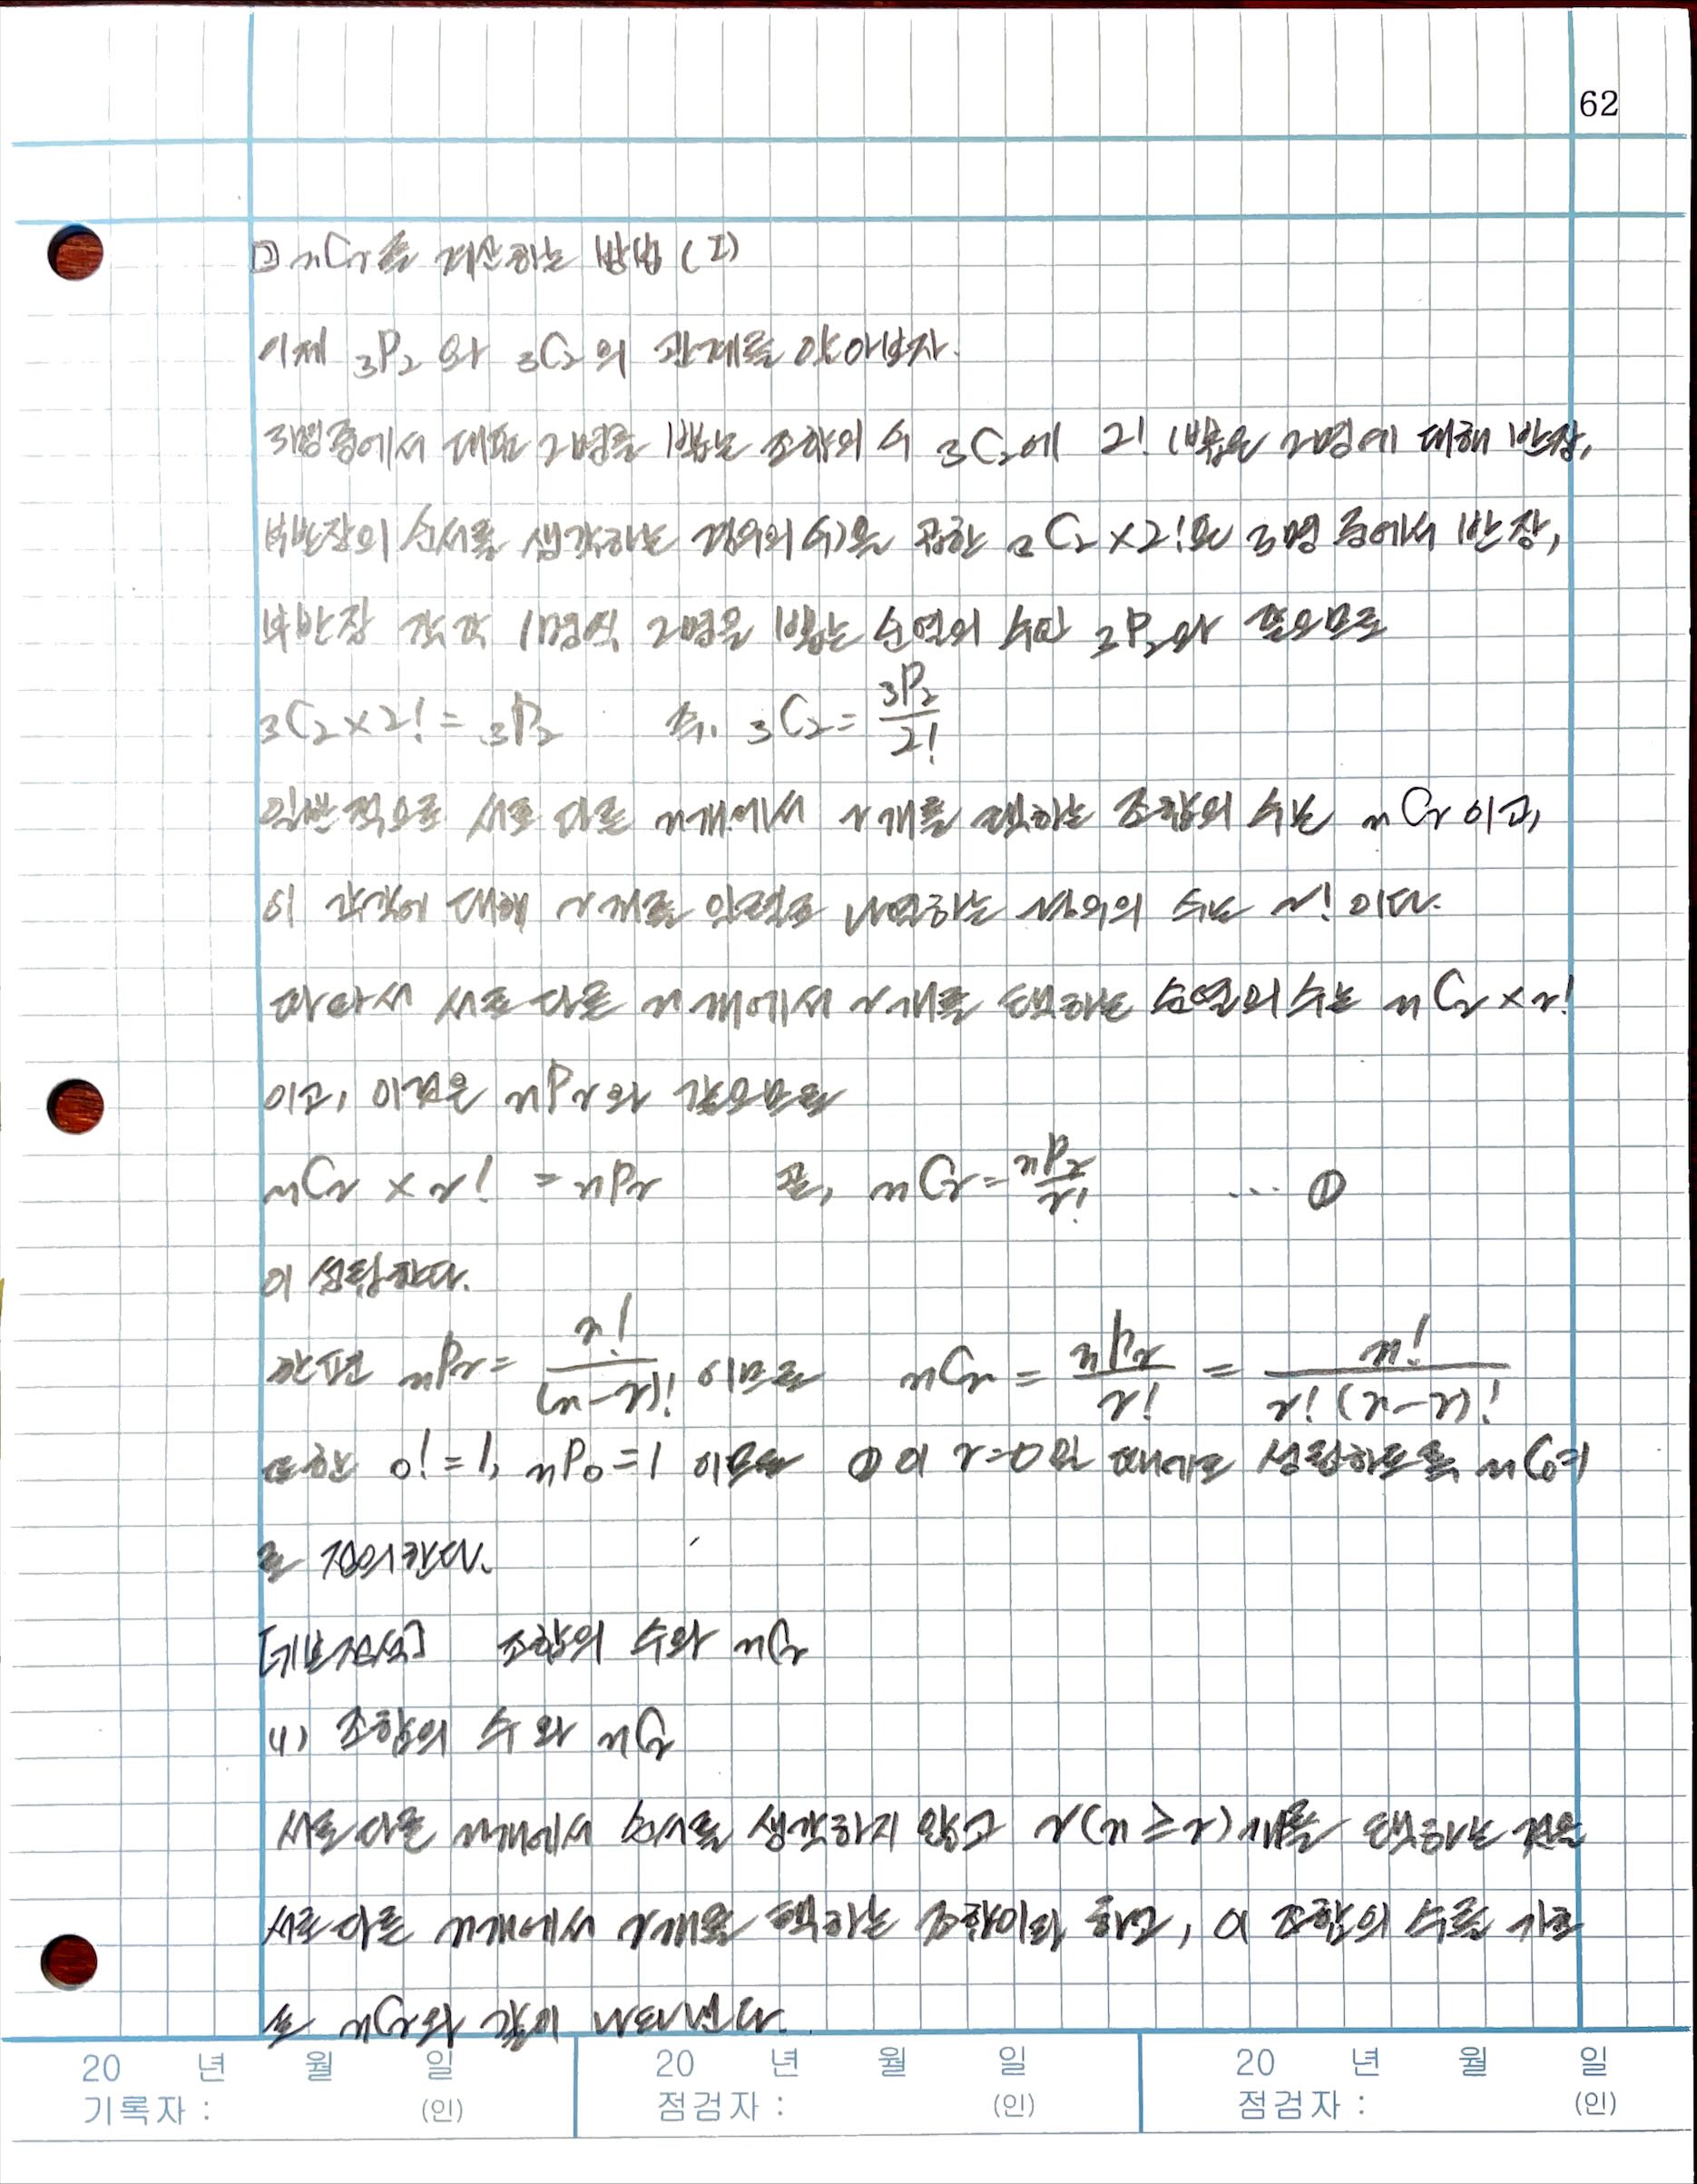 62
② nCr을 계산하는 방법 (I)
이제 ₃P₂ 와 ₃C₂의 관계를 알아보자.
3명 중에서 대표 2명을 뽑는 조합의 수 ₃C₂에 2! (뽑은 2명에 대해 반장,
부반장의 순서를 생각하는 경우의 수)을 곱한 ₃C₂×2!은 3명 중에서 반장,
부반장 각각 1명씩 2명을 뽑는 순열의 수인 ₃P₂와 같으므로
₃C₂×2! = ₃P₂ 즉, ₃C₂ = ₃P₂/2!
일반적으로 서로 다른 n개에서 r개를 택하는 조합의 수는 nCr이고,
이 각각에 대해 r개를 일렬로 나열하는 경우의 수는 r!이다.
따라서 서로 다른 n개에서 r개를 택하는 순열의 수는 nCr×r!
이고, 이것은 nPr와 같으므로
nCr × r! = nPr 곧, nCr = nPr/r! … ①
이 성립한다.
한편 nPr = n!/(n-r)! 이므로 nCr = nPr/r! = n!/(r!(n-r)!)
또한 0!=1, nP₀=1 이므로 ①이 r=0일 때에도 성립하도록 nC₀=1
로 정의한다.
[기본정석] 조합의 수와 nCr
(1) 조합의 수와 nCr
서로 다른 n개에서 순서를 생각하지 않고 r(n≥r)개를 택하는 것을
서로 다른 n개에서 r개를 택하는 조합이라 하고, 이 조합의 수를 기호
로 nCr와 같이 나타낸다.
20 년 월 일 20 년 월 일 20 년 월 일
기록자 : (인) 점검자 : (인) 점검자 : (인)